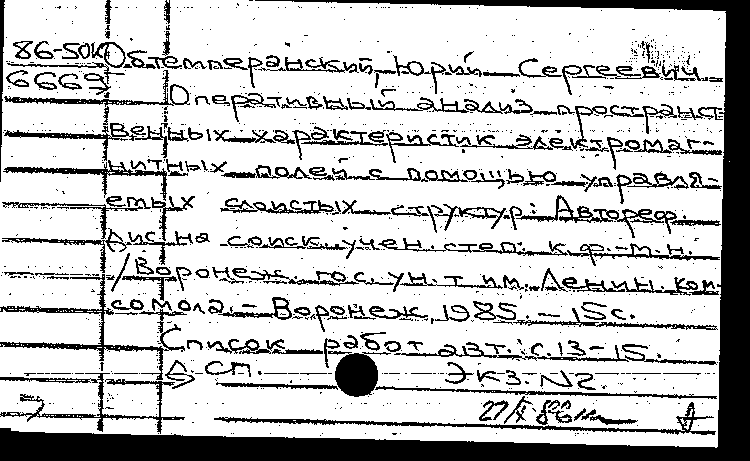 86-50к Обтемперанский, Юрий Сергеевич
6669
Оперативный анализ пространст
венных характеристик электромаг-
нитных полей с помощью управля-
емых слоистых структур: Автореф.
дис на соиск. учен. степ. к.ф.-м.н.
/Воронеж. гос. ун.т им. Ленин. ком-
сомола. - Воронеж, 1985. - 15 с.
Список работ авт.: с. 13-15.
Д СП. Экз. N2.
27/X 86